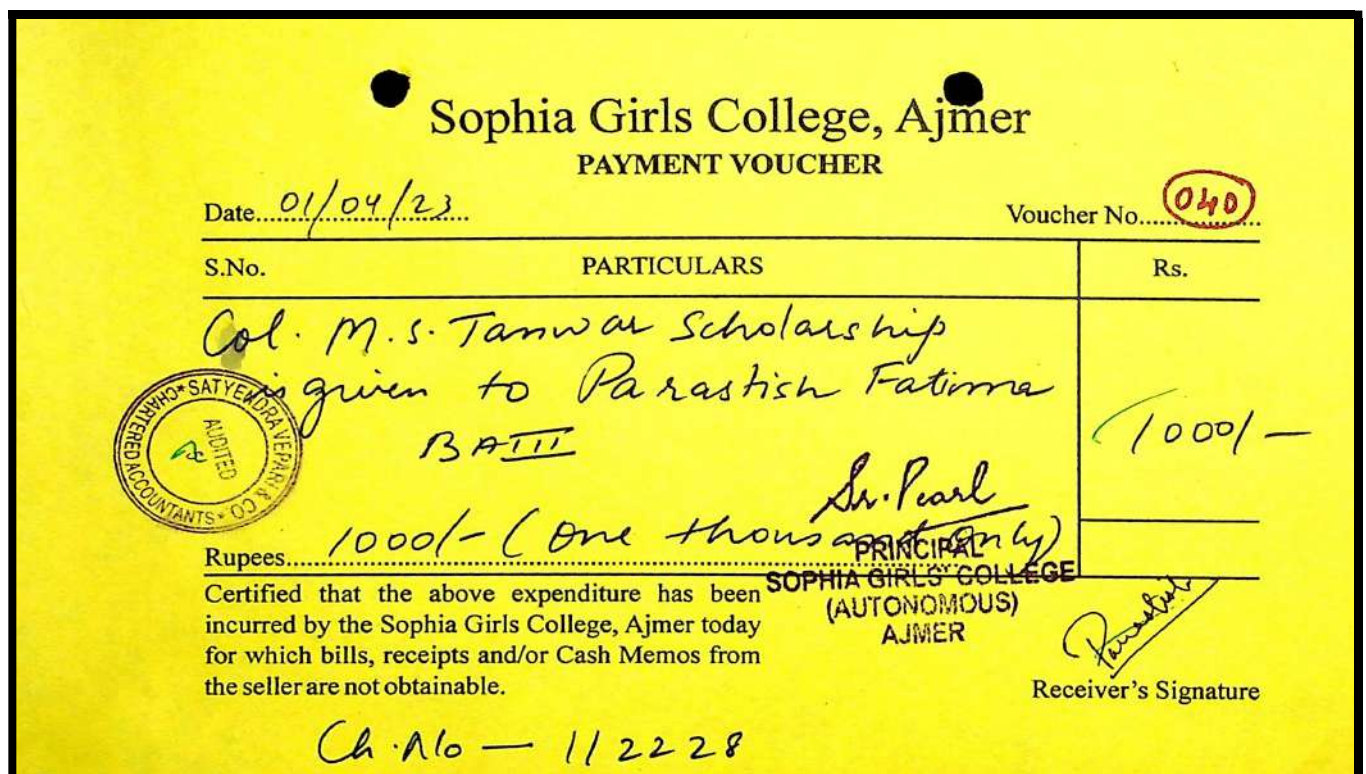 Sophia Girls College, Ajmer
PAYMENT VOUCHER
Date....01/04/23.... Voucher No....040....
S.No. PARTICULARS Rs.
Col. M. S. Tanwar Scholarship
is given to Parastish Fatima
BA III
1000/-
SATYENDRA VEPARI & CO * CHARTERED ACCOUNTANTS *
AUDITED
Sr. Pearl
Rupees....1000/- (One thousand Only)
PRINCIPAL
SOPHIA GIRLS' COLLEGE
(AUTONOMOUS)
AJMER
Certified that the above expenditure has been
incurred by the Sophia Girls College, Ajmer today
for which bills, receipts and/or Cash Memos from
the seller are not obtainable.
Parastish
Receiver's Signature
Ch. No — 112228